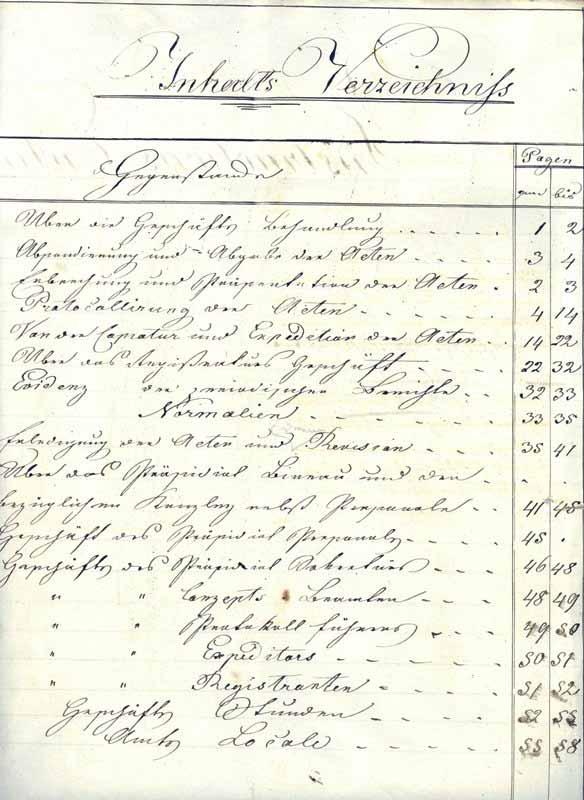 Inhalts Verzeichniss
Gegenstande
Pagen
von bis
Über die Geschäfts Behandlung . . . . . 1 2
und Abgabe der Acten . . . 3 4
Erbrechung und Präsentation der Acten . 2 3
Protocollirung der Acten . . . . . 4 14
Von der Copiatur und Expedition der Acten . . 14 22
Über das Registraturs Geschäft . . . . . 22 32
Evidenz der periodischen Berichte . . 32 33
Normalien . . . . . . 33 35
Erledigung der Acten und Revision . . 35 41
Über das Präsidial Bureau und den . . .
bezüglichen Kanzley nebst Personale . . 41 45
Geschäft des Präsidial Personals . . . 45 .
Geschäfts des Präsidial Sekretärs . . . 46 48
" " Conzepts Beamten . . . 48 49
" " Protokoll führers . . . 49 50
" " Expeditors . . . . . 50 51
" " Registranten . . . . 51 52
Geschäfts Stunden . . . . . 52 55
Amts Locale . . . . . 55 58